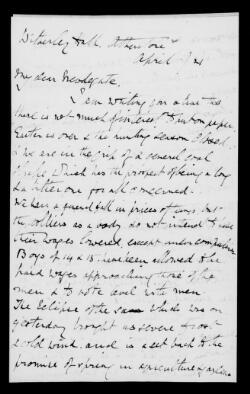 Witherley Hall, Atherstone
April 9 21
My dear Woodgate.
I am writing you a line tho
there is not much of interest to put on paper
Easter is over & the hunting season closed.
& we are in the grip of a general coal
Strike which has the prospect of being a long
& a bitter one for all concerned.
We hear a general fall in prices of
the colliers as a body do not intend to have
their wages lowered, except under compulsion
Boys of 14 & 15 have been allowed to be
paid wages approaching those of the
men & to vote level with men
The Eclipse of the sun which was on
yesterday brought us severe frost
& cold wind. and is a set back to the
promise of spring in agriculture & garden